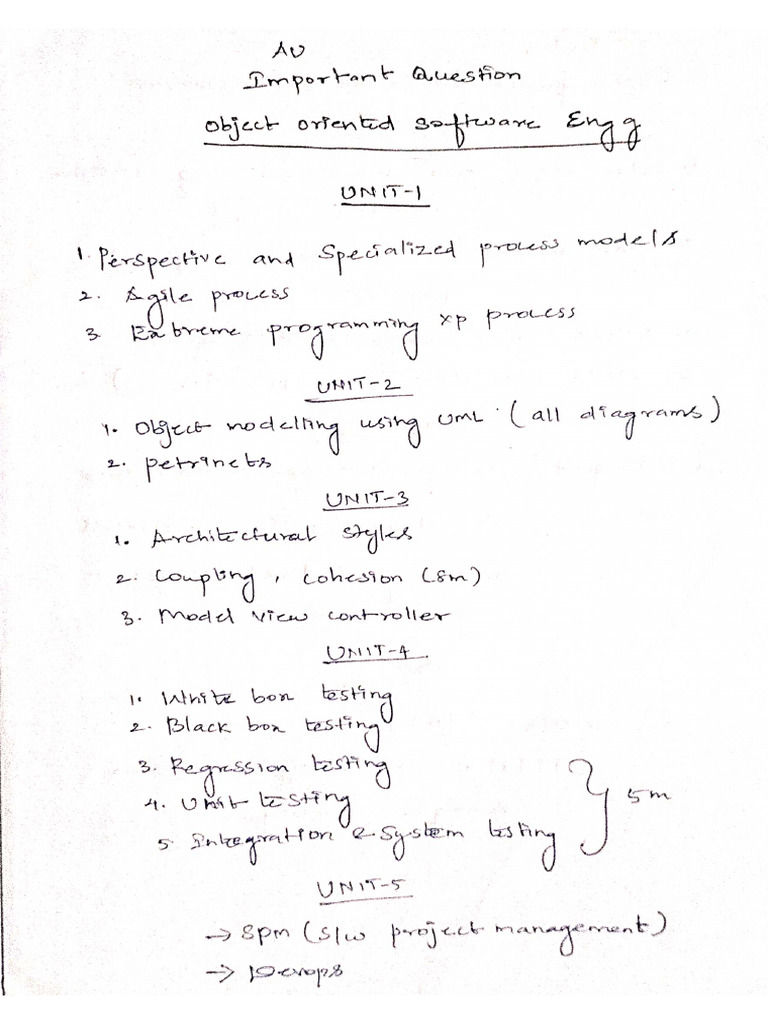 AU
Important Question
Object oriented Software Engg
UNIT-1
1. Perspective and Specialized process models
2. Agile process
3. Extreme programming xp process
UNIT-2
1. Object modelling using UML (all diagrams)
2. petrinets
UNIT-3
1. Architectural styles
2. Coupling, cohesion (8m)
3. Model view controller
UNIT-4
1. White box testing
2. Black box testing
3. Regression testing
4. Unit testing
5m
5 Integration & System testing
UNIT-5
→ SPM (S/W project management)
→ Devops